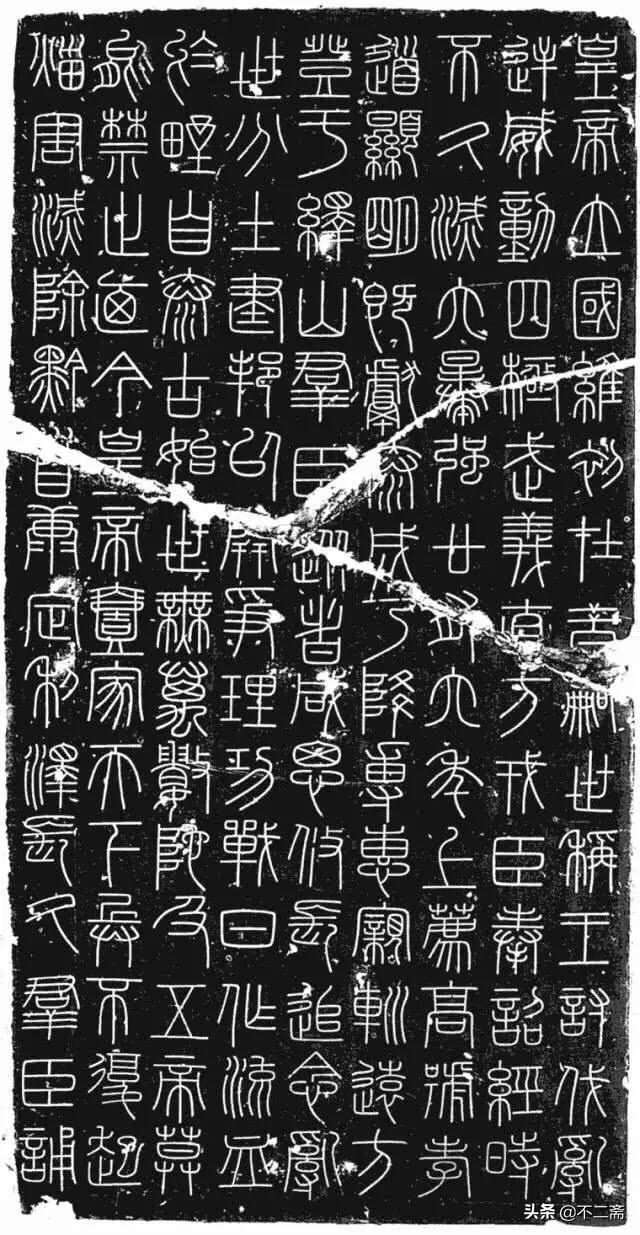 皇帝立國維初在昔嗣世稱王討伐亂
逆威動四極武義直方戎臣奉詔經時
不久滅六暴强廿有六年上薦高號孝
道顯明既獻泰成乃降專惠親巡遠方
登于繹山羣臣從者咸思攸長追念亂
世分土建邦以開爭理功戰日作流血
於野自泰古始世無萬數陀及五帝莫
能禁止迺今皇帝壹家天下兵不復起
災害滅除黔首康定利澤長久羣臣誦
头条 @不二斋